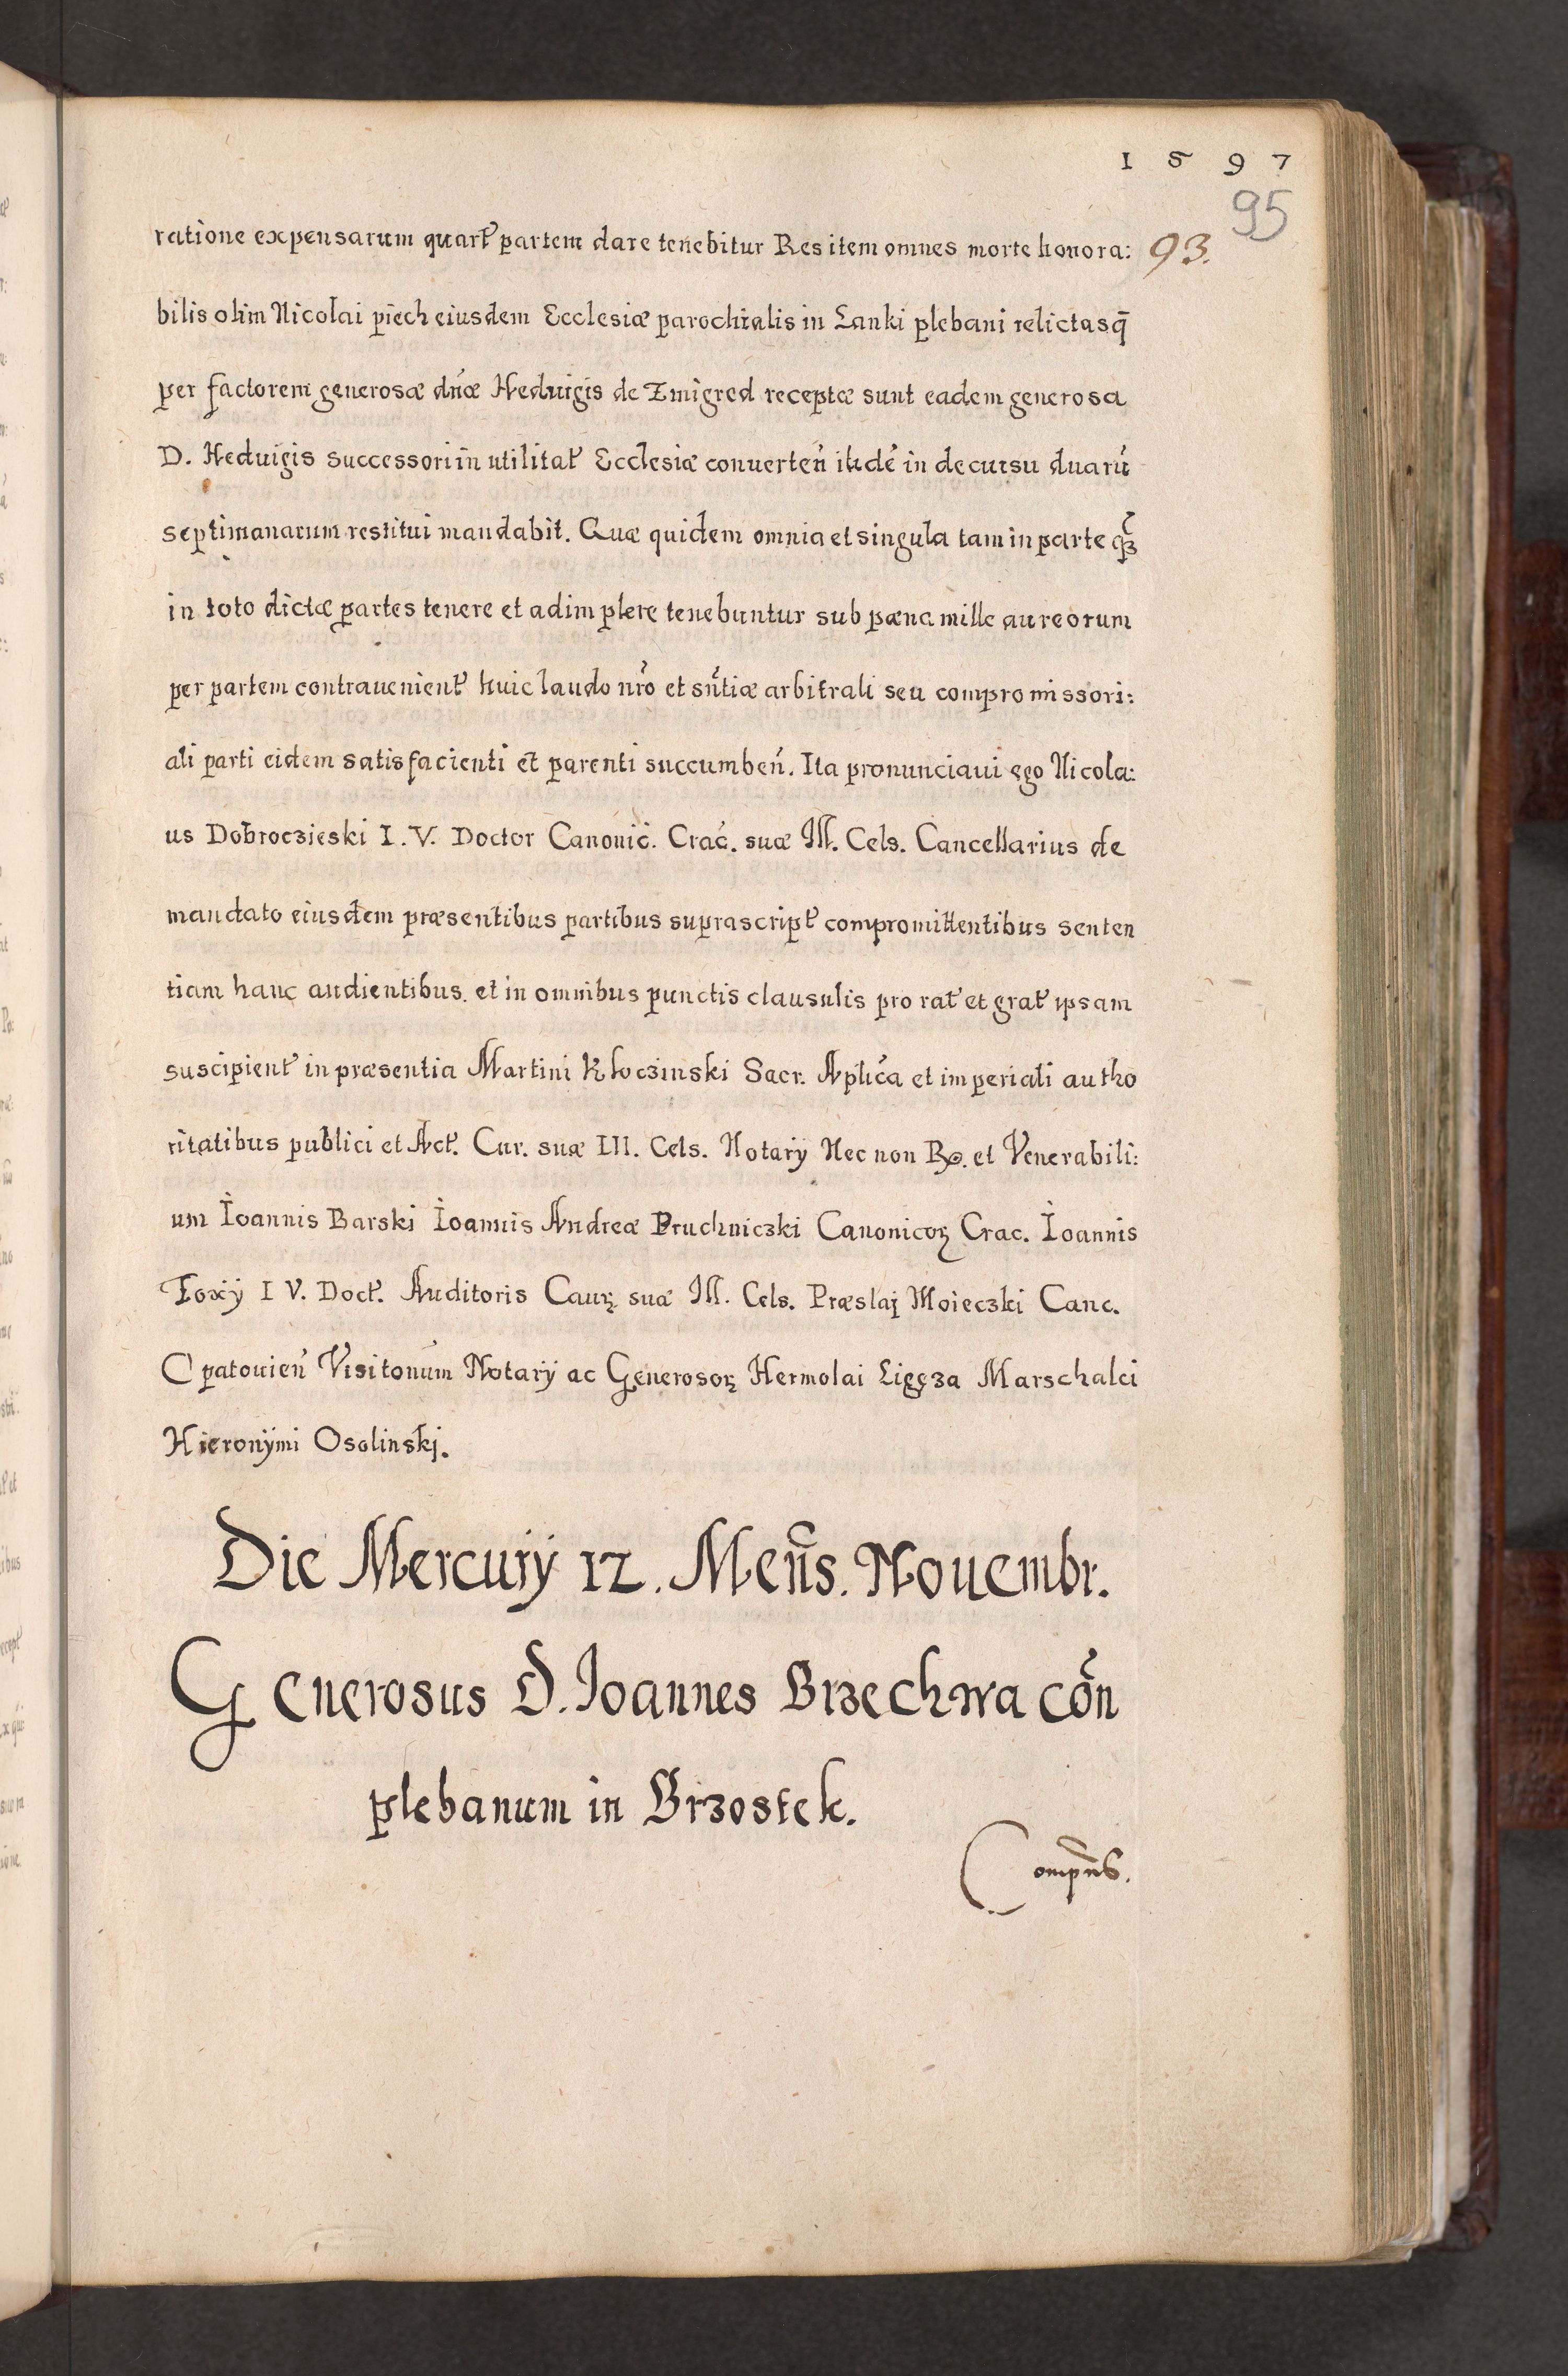 1597
95
ratione expensarum quart̃ partem dare tenebitur Res item omnes morte honora: 93.
bilis olim Nicolai piech eiusdem Ecclesiæ parochialis in Lanki plebani relictasq̃
per factorem generosæ dñæ Heduigis de Zmigred receptæ sunt eadem generosa
D. Heduigis successori in utilitat̃ Ecclesiæ conuerteñ itidẽ in decursu duarũ
septimanarum restitui mandabit. Quæ quidem omnia et singula tam in parte qꝫ
in toto dictæ partes tenere et adimplere tenebuntur sub pæna mille aureorum
per partem contrauenient̃ huic laudo nr̃o et sñtiæ arbitrali seu compromissori:
ali parti eidem satisfacienti et parenti succumbeñ. Ita pronunciaui ego Nicola:
us Dobroczieski I. V. Doctor Canonic̃. Crac̃. suæ Ill. Cels. Cancellarius de
mandato eiusdem præsentibus partibus suprascript̃ compromittentibus senten
tiam hanc audientibus. et in omnibus punctis clausulis pro rat̃ et grat̃ ipsam
suscipient̃ in præsentia Martini Kłoczinski Sacr. Aplic̃a et imperiali autho
ritatibus publici et Act̃. Cur. suæ Ill. Cels. Notarÿ Nec non et Venerabili:
um Ioannis Barski Ioannis Andreæ Pruchniczki Canonicoꝝ Crac. Ioannis
Foxÿ I V. Doct̃. Auditoris Cauꝝ suæ Ill. Cels. Præslaj Moieczki Canc.
Opatouieñ Visitonum Notarÿ ac Generosoꝝ Hermolai Ligęza Marschalci
Hieronÿmi Osolinskj.
Die Mercurÿ 12. Meñs. Nouembr.
Generosus D. Ioannes Brzechwa cõn
plebanum in Brzostek.
Comp̃ns.